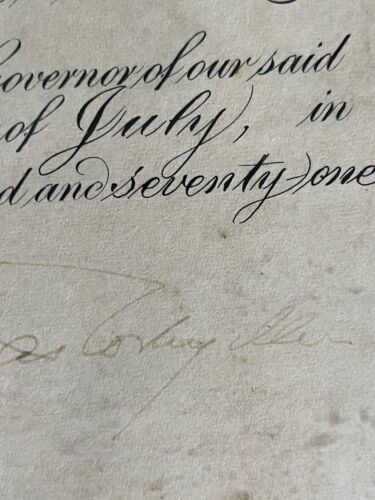 overnor of our said
of July, in
d and seventy one